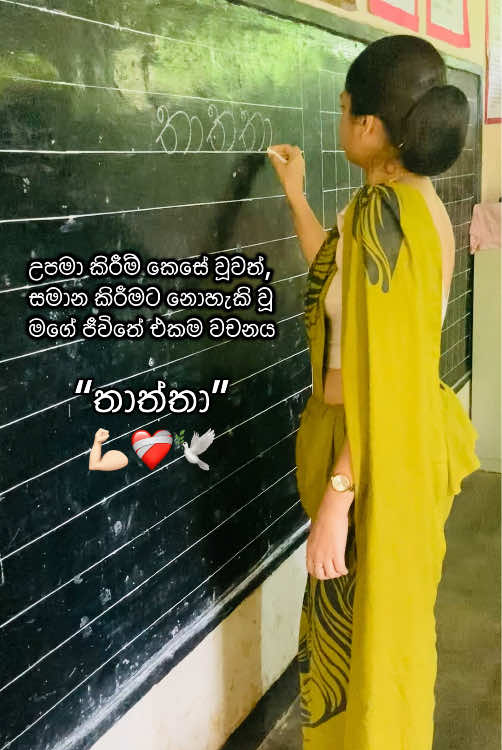 තාත්තා
උපමා කිරීම් කෙසේ වූවත්,
සමාන කිරීමට නොහැකි වූ
මගේ ජීවිතේ එකම වචනය
“තාත්තා”
💪🏻❤️‍🩹🕊️